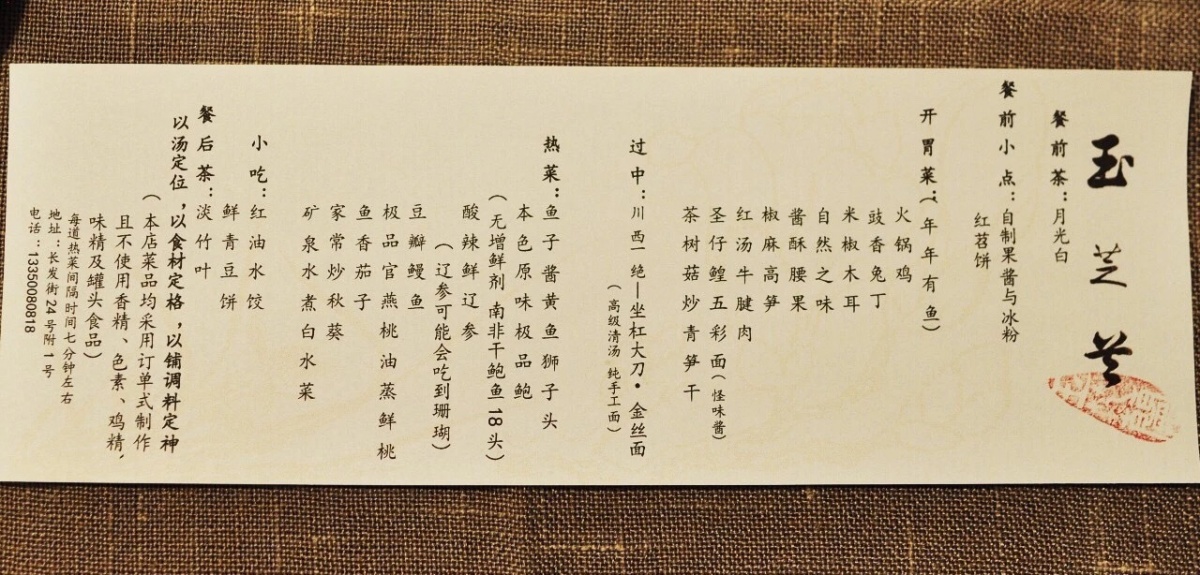 玉芝兰
餐前茶：月光白
餐前小点：自制果酱与冰粉
红苕饼
开胃菜：（年年有鱼）
火锅鸡
豉香兔丁
米椒木耳
自然之味
酱酥腰果
椒麻高笋
红汤牛腱肉
圣仔鳇五彩面（怪味酱）
茶树菇炒青笋干
过中：川西一绝—坐杠大刀·金丝面
（高级清汤 纯手工面）
热菜：鱼子酱黄鱼狮子头
本色原味极品鲍
（无增鲜剂 南非干鲍鱼18头）
酸辣鲜辽参
（辽参可能会吃到珊瑚）
豆瓣鳗鱼
极品官燕桃油蒸鲜桃
鱼香茄子
家常炒秋葵
矿泉水煮白水菜
小吃：红油水饺
鲜青豆饼
餐后茶：淡竹叶
以汤定位，以食材定格，以铺调料定神
（本店菜品均采用订单式制作
且不使用香精、色素、鸡精、
味精及罐头食品）
每道热菜间隔时间七分钟左右
地址：长发街24号附1号
电话：13350080818